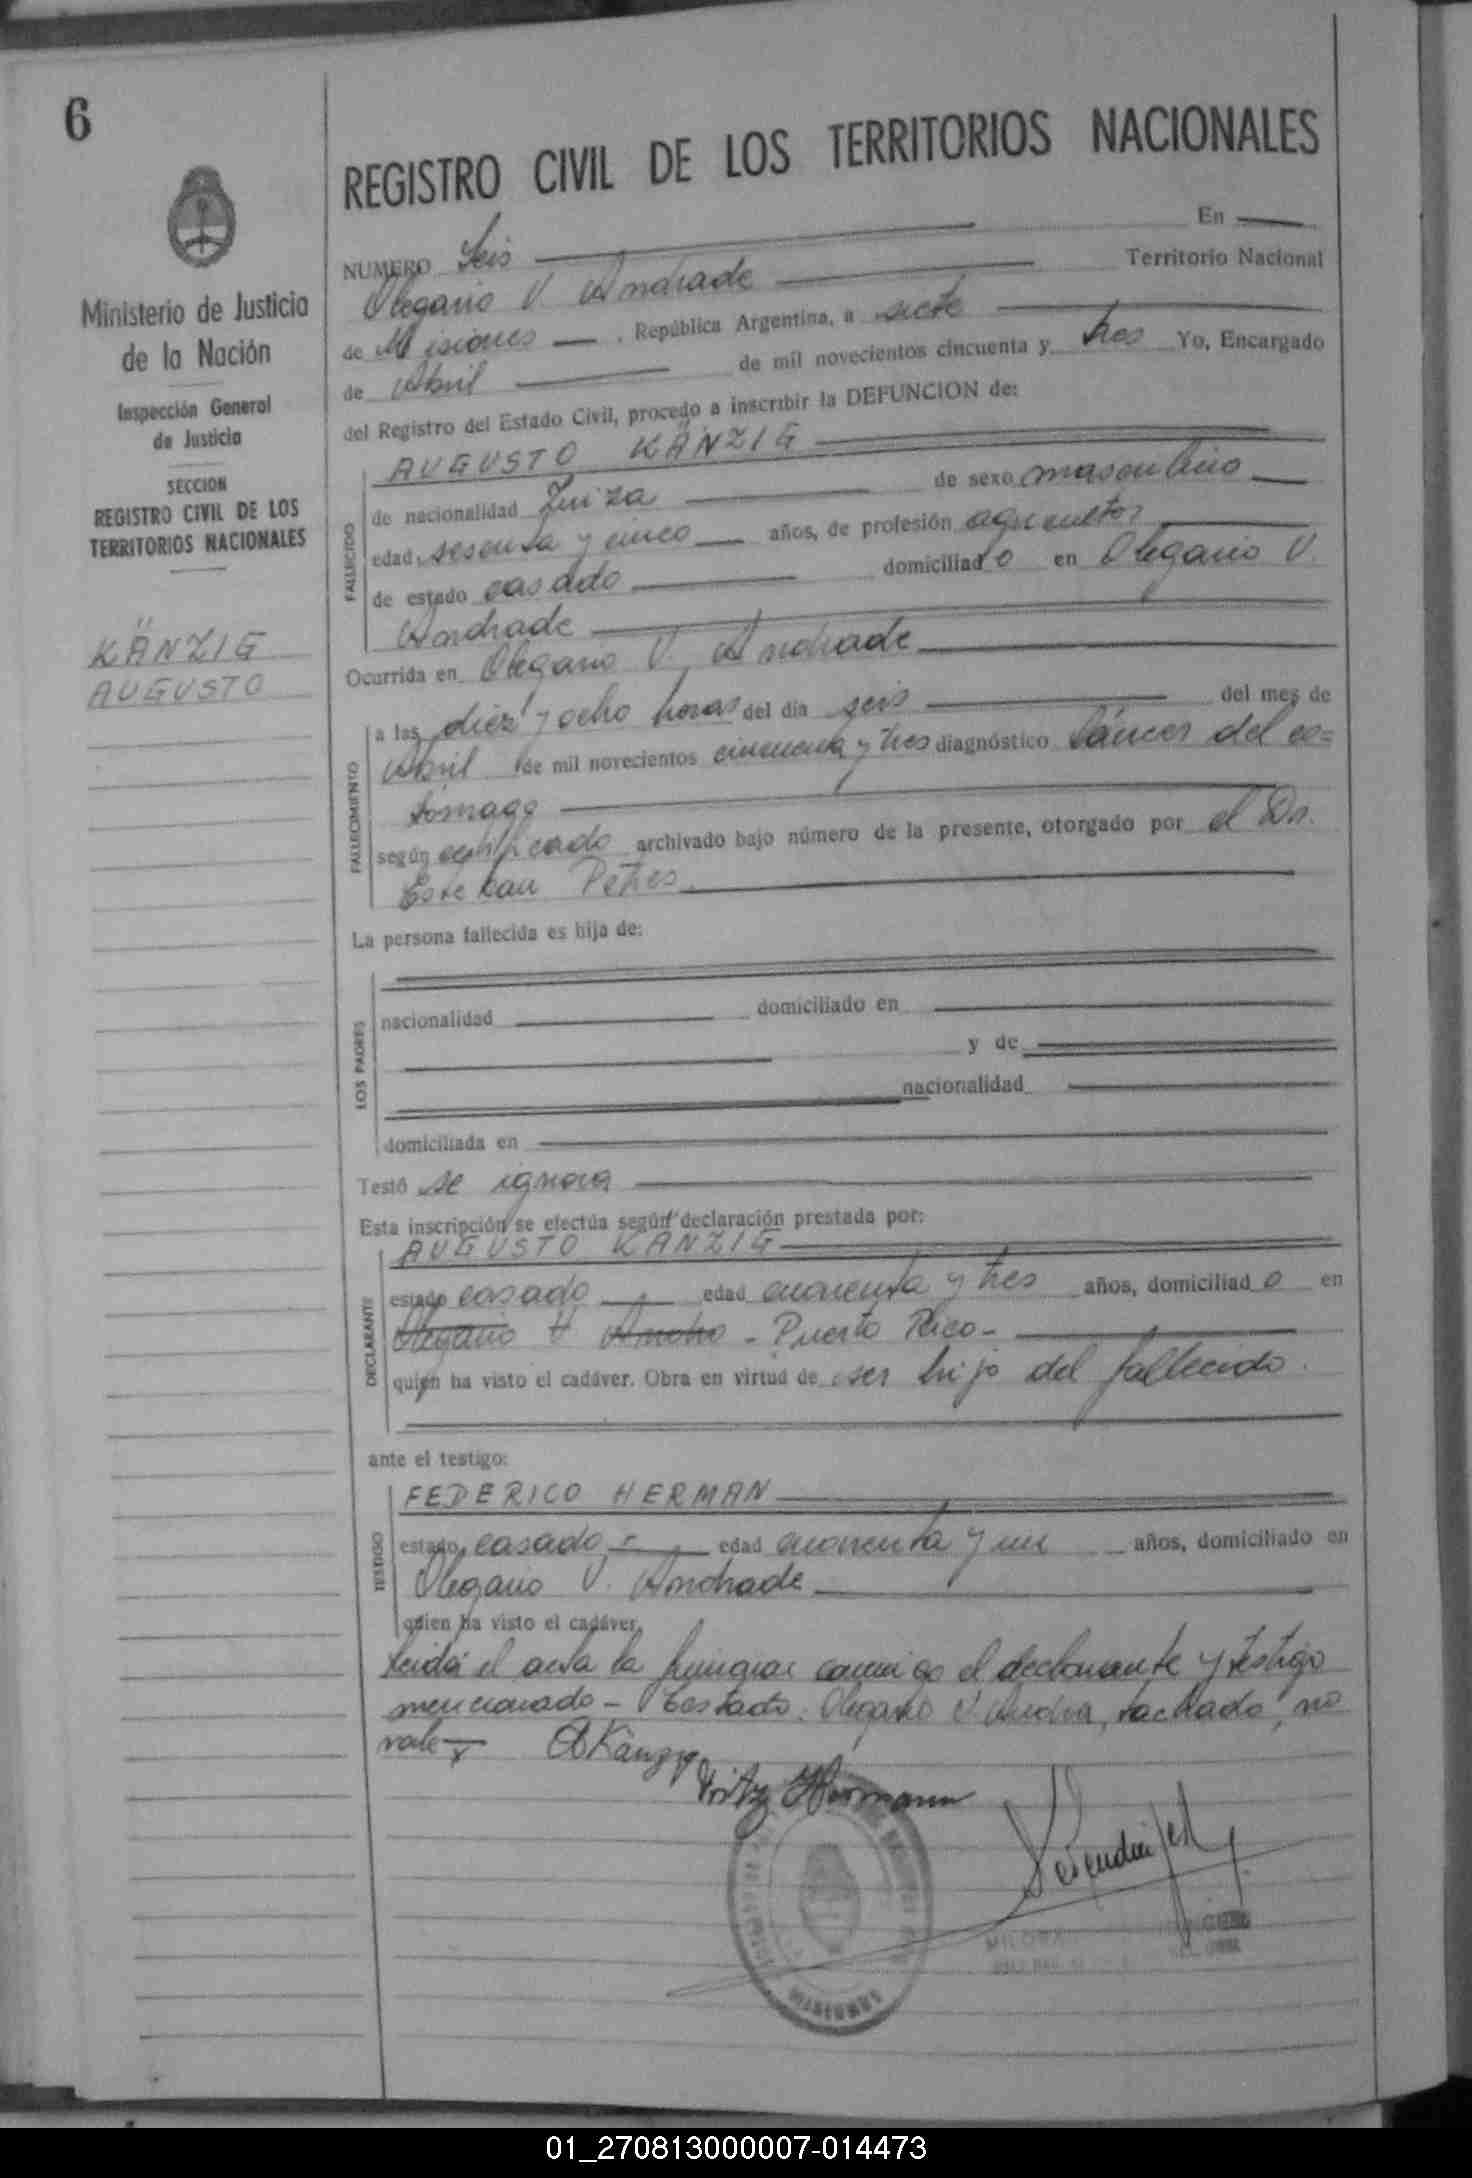 6
Ministerio de Justicia
de la Nación
Inspección General
de Justicia
SECCION
REGISTRO CIVIL DE LOS
TERRITORIOS NACIONALES
KÄNZIG
AUGUSTO
REGISTRO CIVIL DE LOS TERRITORIOS NACIONALES
NUMERO Seis En
Olegario V. Andrade Territorio Nacional
de Misiones , República Argentina, a siete
de Abril de mil novecientos cincuenta y tres Yo, Encargado
del Registro del Estado Civil, procedo a inscribir la DEFUNCION de:
AUGUSTO KÄNZIG
FALLECIDO
de nacionalidad Suiza de sexo masculino
edad sesenta y cinco años, de profesión agricultor
de estado casado domiciliado en Olegario V.
Andrade
Ocurrida en Olegario V. Andrade
FALLECIMIENTO
a las diez y ocho horas del día seis del mes de
Abril de mil novecientos cincuenta y tres diagnóstico Cáncer del es=
tómago
según certificado archivado bajo número de la presente, otorgado por el Dr.
Esteban Petres
La persona fallecida es hija de:
LOS PADRES
nacionalidad domiciliado en
y de
nacionalidad
domiciliada en
Testó se ignora
Esta inscripción se efectúa según declaración prestada por:
AUGUSTO KANZIG
DECLARANTE
estado casado edad cuarenta y tres años, domiciliado en
Olegario V. Andra - Puerto Rico -
quien ha visto el cadáver. Obra en virtud de ser hijo del fallecido.
ante el testigo:
FEDERICO HERMAN
TESTIGO
estado casado edad cuarenta y un años, domiciliado en
Olegario V. Andrade
quien ha visto el cadáver.
Leída el acta la firman conmigo el declarante y testigo
mencionado - Testado: Olegario V. Andra, tachado, no
vale
A Känzig
Fritz Hermann
MISIONES
01_270813000007-014473